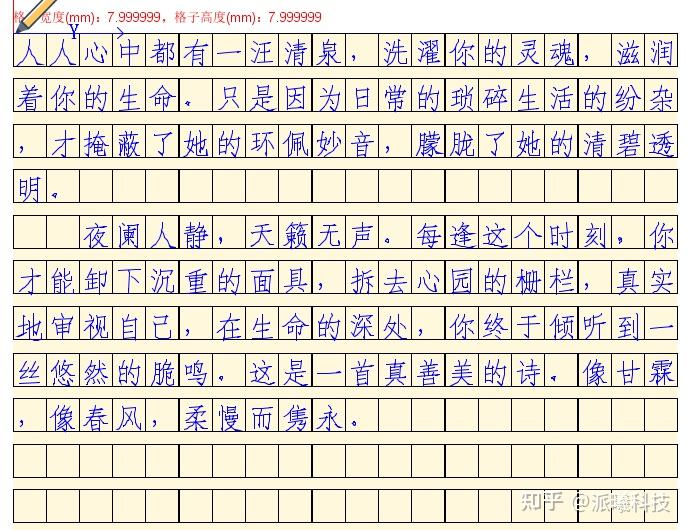 格子宽度(mm)：7.999999，格子高度(mm)：7.999999
Y
人人心中都有一汪清泉，洗濯你的灵魂，滋润
着你的生命。只是因为日常的琐碎生活的纷杂
，才掩蔽了她的环佩妙音，朦胧了她的清碧透
明。
夜阑人静，天籁无声。每逢这个时刻，你
才能卸下沉重的面具，拆去心园的栅栏，真实
地审视自己，在生命的深处，你终于倾听到一
丝悠然的脆鸣。这是一首真善美的诗。像甘霖
，像春风，柔慢而隽永。
知乎 @派曦科技